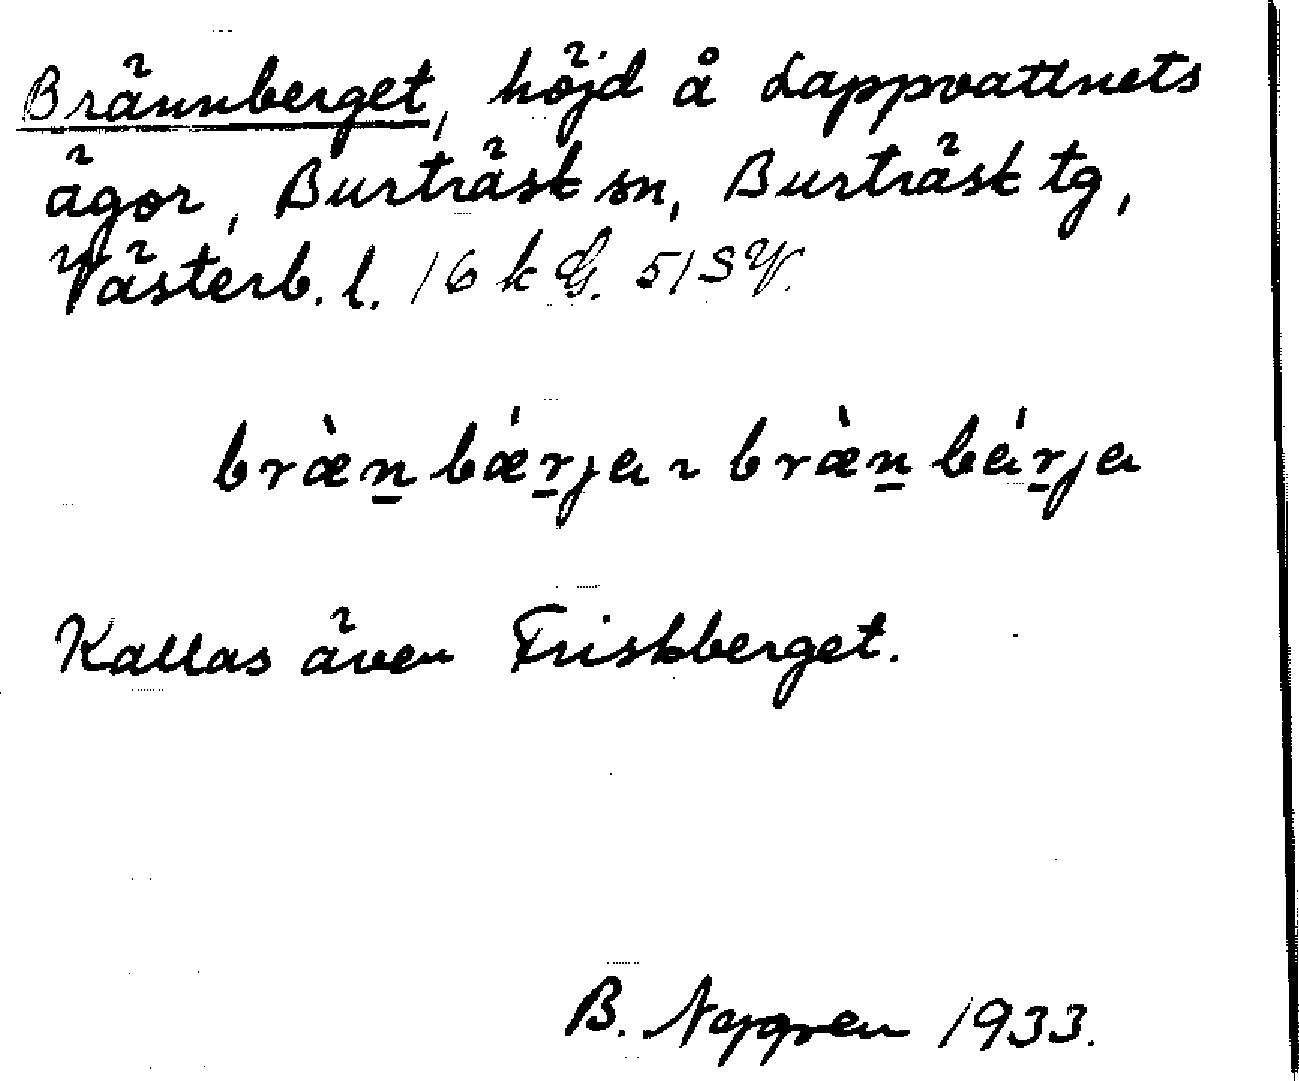 Brännberget, höjd å Lappvattnets
ägor, Burträsk sn, Burträsk tg,
Västerb. l. 16 k G. 51 SV.
bræ̀n̲ bǽr̲ja ~ bræ̀n̲ bár̲ja
Kallas även Friskberget.
B. Nygren 1933.